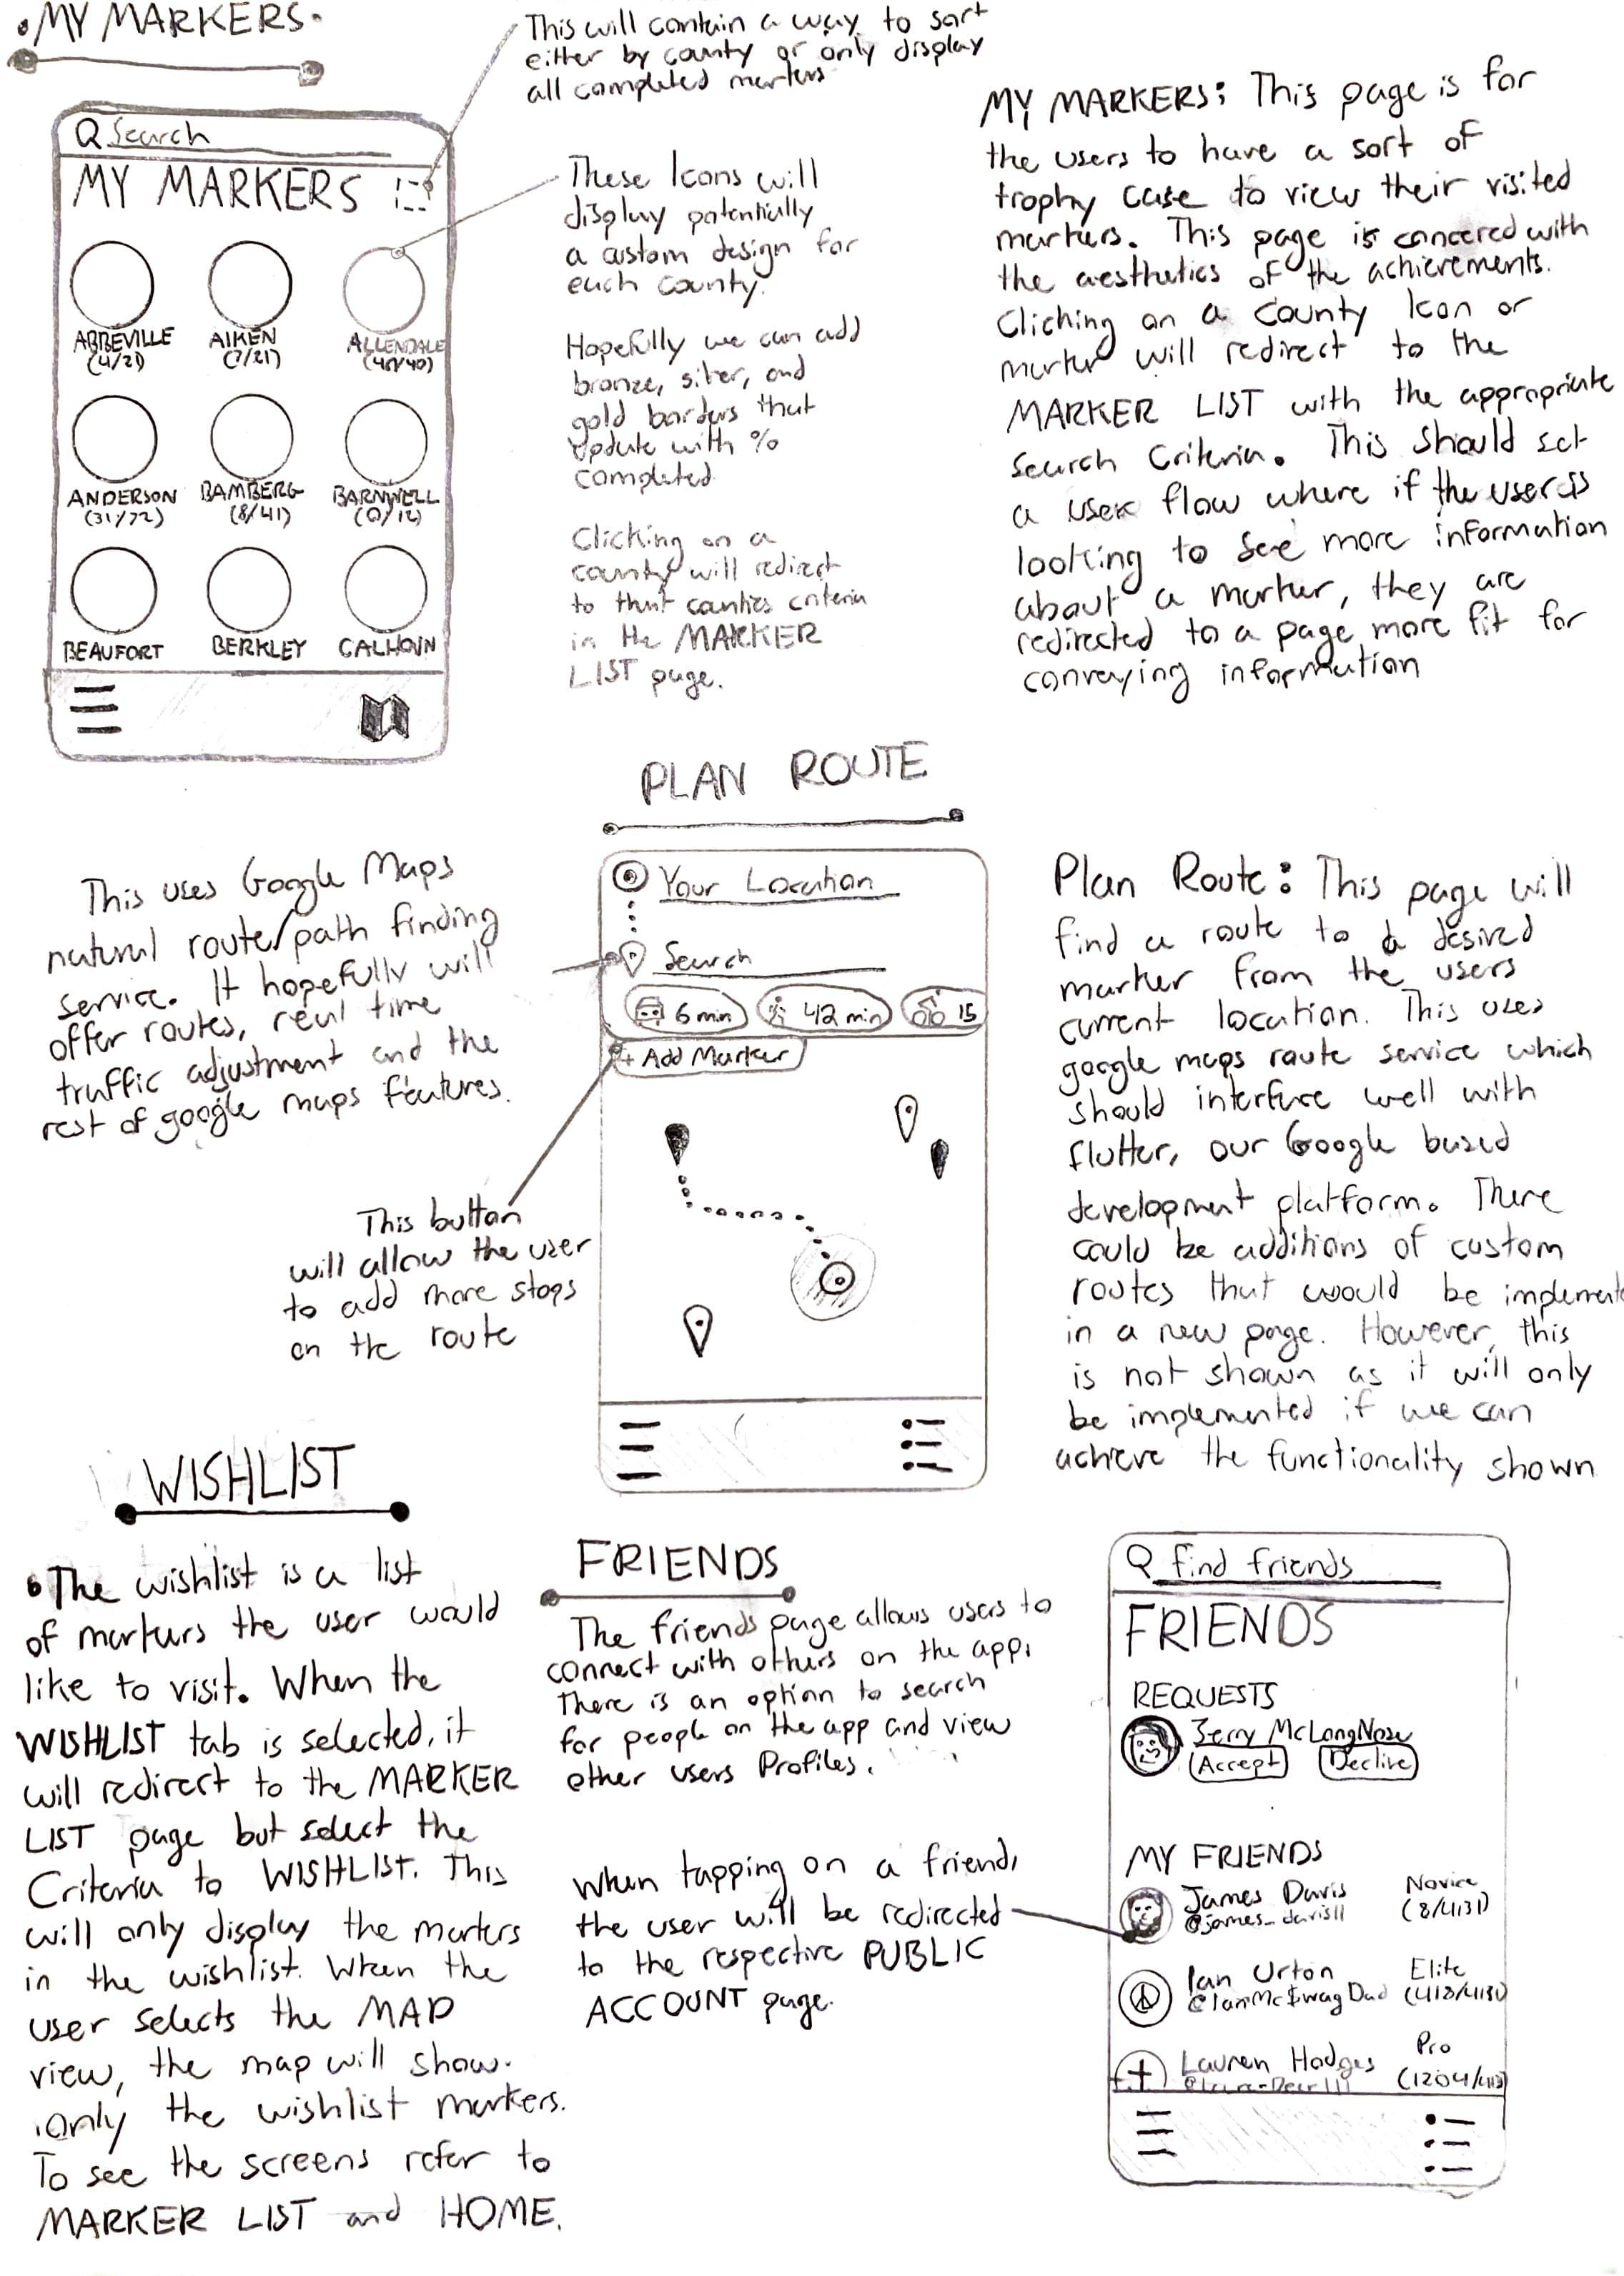 MY MARKERS
This will contain a way to sort
either by county or only display
all completed markers
Search
MY MARKERS
ABBEVILLE
(4/21)
AIKEN
(7/21)
ALLENDALE
(40/40)
ANDERSON
(31/72)
BAMBERG
(8/41)
BARNWELL
(0/12)
BEAUFORT
BERKLEY
CALHOUN
These Icons will
display potentially
a custom design for
each county.
Hopefully we can add
bronze, silver, and
gold borders that
update with %
completed
Clicking on a
county will redirect
to that counties criteria
in the MARKER
LIST page.
MY MARKERS: This page is for
the users to have a sort of
trophy case to view their visited
markers. This page is concered with
the aesthetics of the achievements.
Clicking on a County Icon or
marker will redirect to the
MARKER LIST with the appropriate
search Criteria. This should set
a user flow where if the user is
looking to see more information
about a marker, they are
redirected to a page more fit for
conveying information
PLAN ROUTE
This uses Google Maps
natural route/path finding
service. It hopefully will
offer routes, real time
traffic adjustment and the
rest of google maps features.
This button
will allow the user
to add more stops
on the route
Your Location
Search
6 min
42 min
15
+ Add Marker
Plan Route: This page will
find a route to a desired
marker from the users
current location. This uses
google maps route service which
should interface well with
flutter, our Google based
development platform. There
could be additions of custom
routes that would be implement
in a new page. However, this
is not shown as it will only
be implemented if we can
achieve the functionality shown
WISHLIST
• The wishlist is a list
of markers the user would
like to visit. When the
WISHLIST tab is selected, it
will redirect to the MARKER
LIST page but select the
Criteria to WISHLIST. This
will only display the markers
in the wishlist. When the
user selects the MAP
view, the map will show
only the wishlist markers.
To see the screens refer to
MARKER LIST and HOME.
FRIENDS
The friends page allows users to
connect with others on the app.
There is an option to search
for people on the app and view
other users Profiles.
When tapping on a friend,
the user will be redirected
to the respective PUBLIC
ACCOUNT page.
find friends
FRIENDS
REQUESTS
Jerry McLongNose
Accept
Decline
MY FRIENDS
James Davis
@james_davis11
Novice
(8/4131)
Ian Urton
@IanMc$wagDad
Elite
(418/4131)
Lauren Hodges
Pro